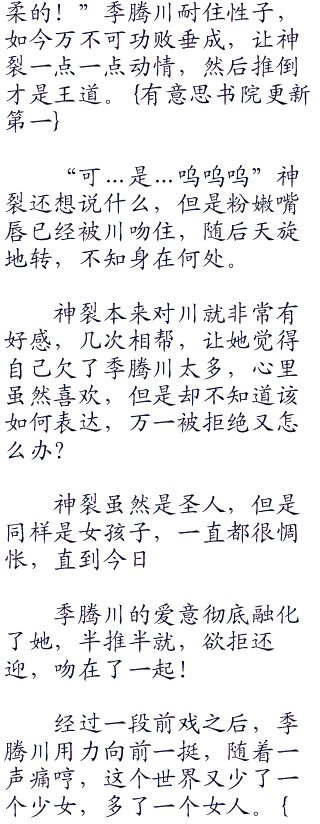 柔的！”季腾川耐住性子，
如今万不可功败垂成，让神
裂一点一点动情，然后推倒
才是王道。{有意思书院更新
第一}
“可…是…呜呜呜”神
裂还想说什么，但是粉嫩嘴
唇已经被川吻住，随后天旋
地转，不知身在何处。
神裂本来对川就非常有
好感，几次相帮，让她觉得
自己欠了季腾川太多，心里
虽然喜欢，但是却不知道该
如何表达，万一被拒绝又怎
么办？
神裂虽然是圣人，但是
同样是女孩子，一直都很惆
怅，直到今日
季腾川的爱意彻底融化
了她，半推半就，欲拒还
迎，吻在了一起！
经过一段前戏之后，季
腾川用力向前一挺，随着一
声痛哼，这个世界又少了一
个少女，多了一个女人。{